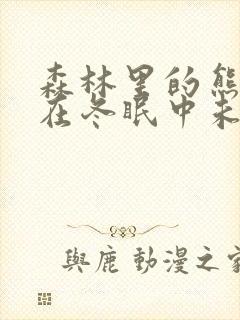 森林里的熊
在冬眠中未
與鹿 動漫之家